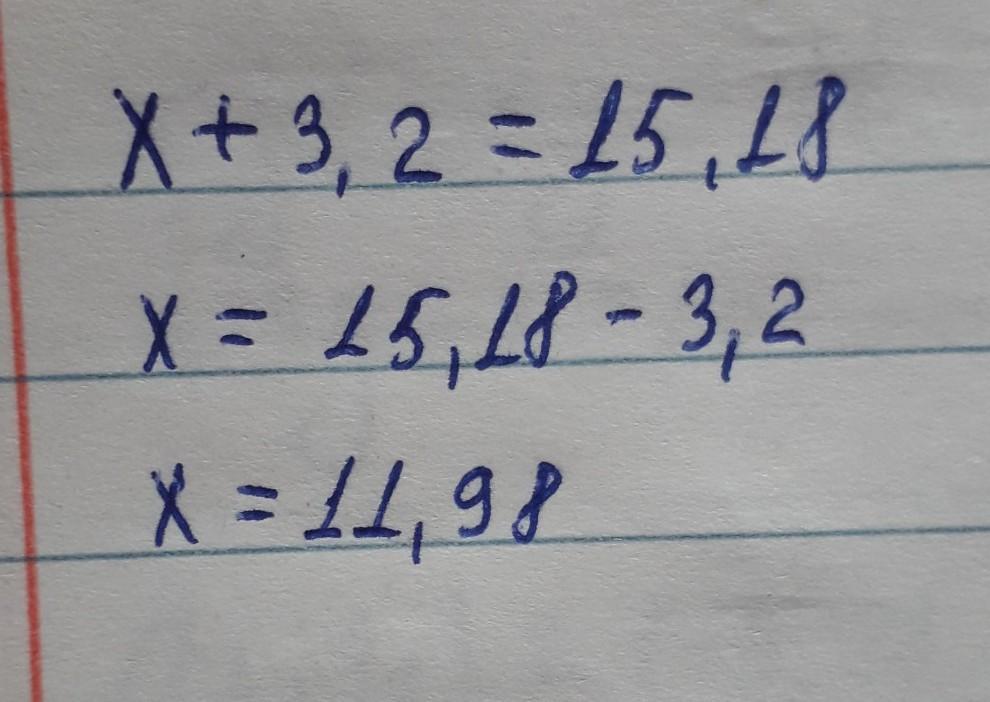 x + 3,2 = 15,18
x = 15,18 - 3,2
x = 11,98